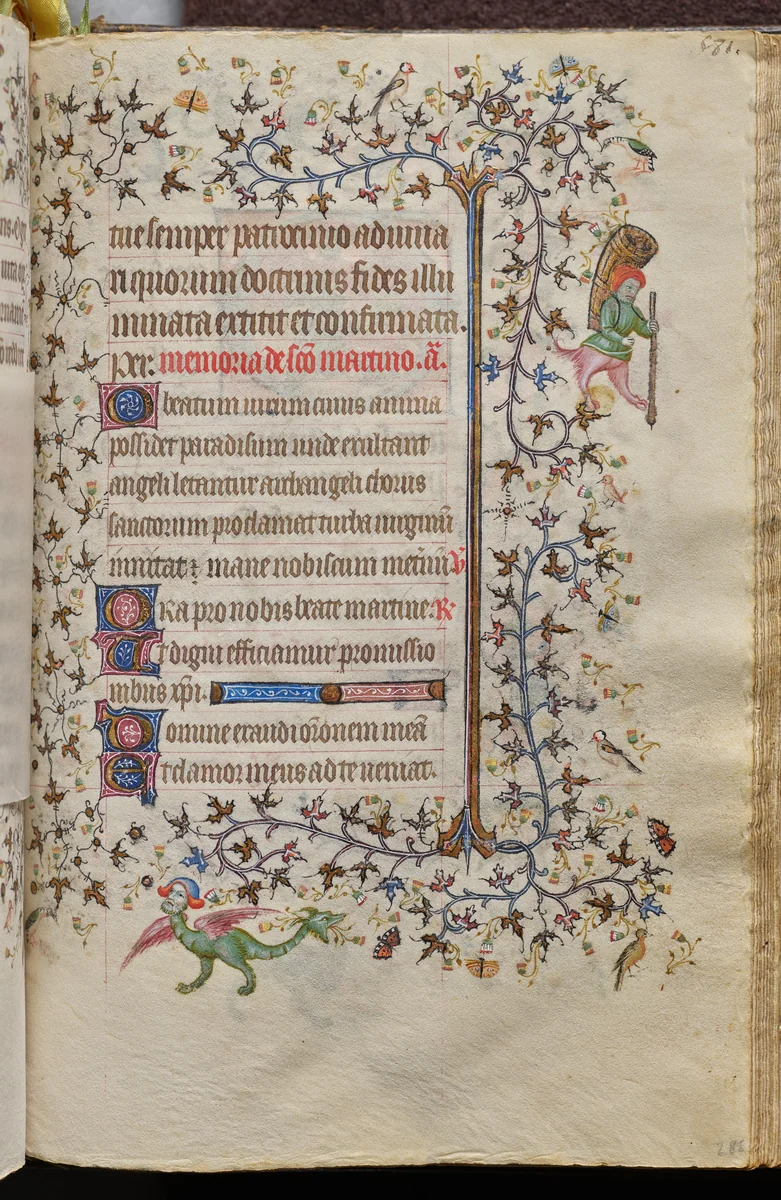 tue semper patrocinio adiuua
ri quorum doctrinis fides illu
minata extitit et confirmata.
Per. memoria de sco martino. a.
O beatum uirum cuius anima
possidet paradisum unde exultant
angeli letantur archangeli chorus
sanctorum proclamat turba uirginu
inuitat mane nobiscum V
Ora pro nobis beate martine. R
Ut digni efficiamur promissio
nibus xpi.
Domine exaudi oronem mea
Et clamor meus ad te ueniat.